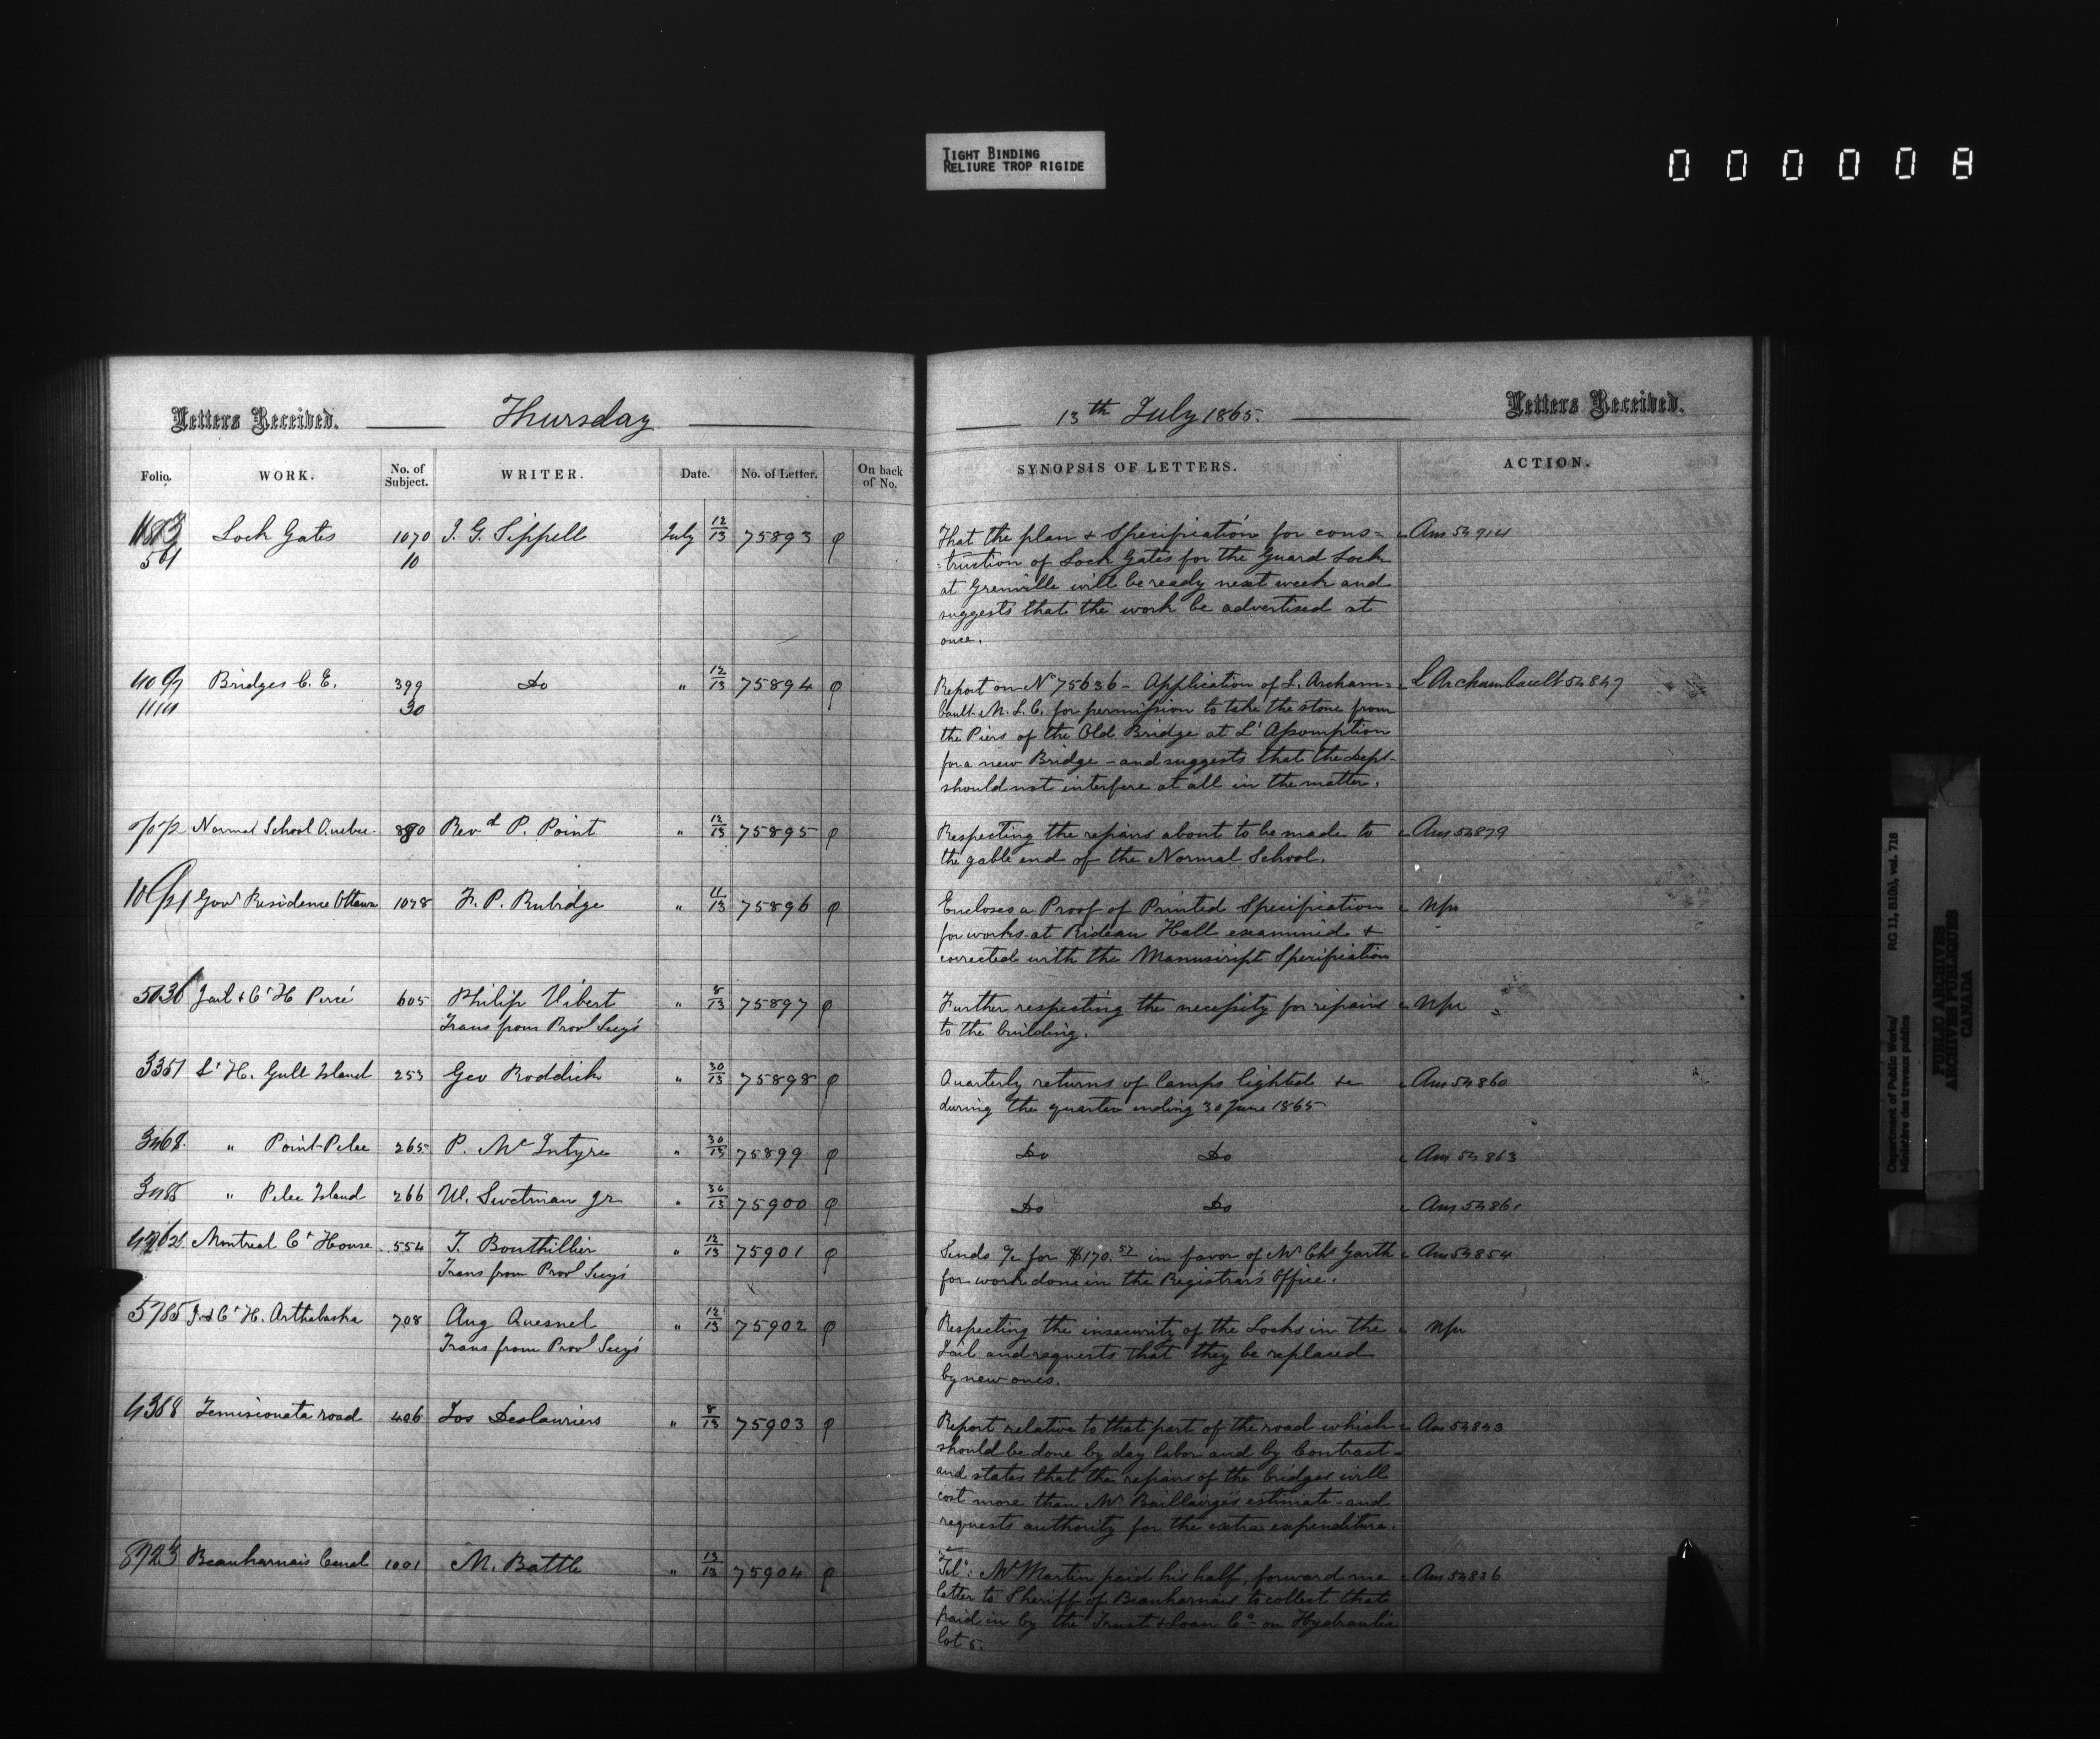 TIGHT BINDING
RELIURE TROP RIGIDE
000008
Letters Received. Thursday
Folio. WORK. No. of Subject. WRITER. Date. No. of Letter. On back of No.
Lock Gates 1070 J. G. Sippell July 12/13 75893
561 10
Bridges C. E. 399 Do " 12/13 75894
30
Normal School Quebec 890 Revd P. Point " 12/13 75895
Govr Residence Ottawa 1078 F. P. Rubidge " 11/13 75896
5036 Jail & Ct H Percé 605 Philip Vibert " 8/13 75897
Trans from Provl Secy's
3351 Lt H. Gull Island 253 Geo Roddick " 30/13 75898
3468 " Point Pelee 265 P. McIntyre " 30/13 75899
3485 " Pelee Island 266 W. Swetman jr " 30/13 75900
Montreal Ct House 554 T. Bouthillier " 12/13 75901
Trans from Provl Secy's
5785 J. & Ct H. Arthabaska 708 Aug Quesnel " 12/13 75902
Trans from Provl Secy's
4368 Temisconata road 406 Jos Deslauriers " 8/13 75903
8723 Beauharnais Canal 1001 M. Battle " 13/13 75904
13th July 1865. Letters Received.
SYNOPSIS OF LETTERS. ACTION.
That the plan & Specification for cons= Ans 54914
=truction of Lock Gates for the Guard Lock
at Grenville will be ready next week and
suggests that the work be advertised at
once.
Report on No 75636 - Application of L. Archam= L Archambault 54847
bault M. L. C. for permission to take the stone from
the Piers of the Old Bridge at L'Assomption
for a new Bridge - and suggests that the Dept
should not interfere at all in the matter.
Respecting the repairs about to be made to Ans 54879
the gable end of the Normal School.
Encloses a Proof of Printed Specification Npr
for works at Rideau Hall examined &
corrected with the Manuscript Specification
Further respecting the necessity for repairs Npr
to the building.
Quarterly returns of lamps lighted &c Ans 54860
during the quarter ending 30 June 1865
Do Do Ans 54863
Do Do Ans 54861
Sends a/c for $170.57 in favor of Mr Chs Garth Ans 54854
for work done in the Registrar's Office.
Respecting the insecurity of the Locks in the Npr
Jail and requests that they be replaced
by new ones.
Report relative to that part of the road which Ans 54843
should be done by day labor and by Contract -
and states that the repairs of the bridges will
cost more than Mr Baillairgé's estimate - and
requests authority for the extra expenditure.
Tel: Mr Martin paid his half, forward me Ans 54836
letter to Sheriff of Beauharnais to collect that
paid in by the Trust & Loan Co on Hydraulic
lot 5.
Department of Public Works/ RG 11, B1(b), vol. 718
Ministère des travaux publics
PUBLIC ARCHIVES
ARCHIVES PUBLIQUES
CANADA